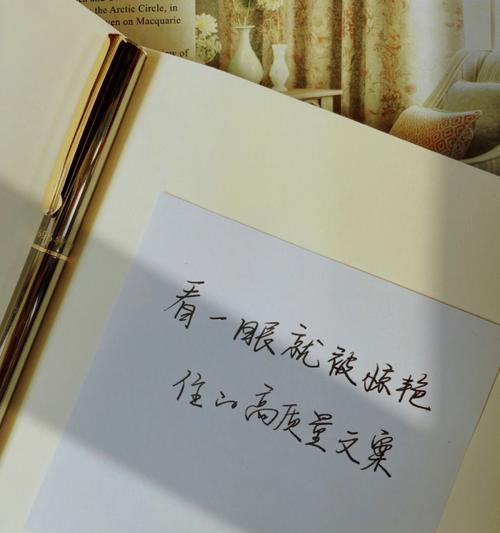 the Arctic Circle, in
on Macquarie
of
看一眼就被惊艳
住的高质量文案